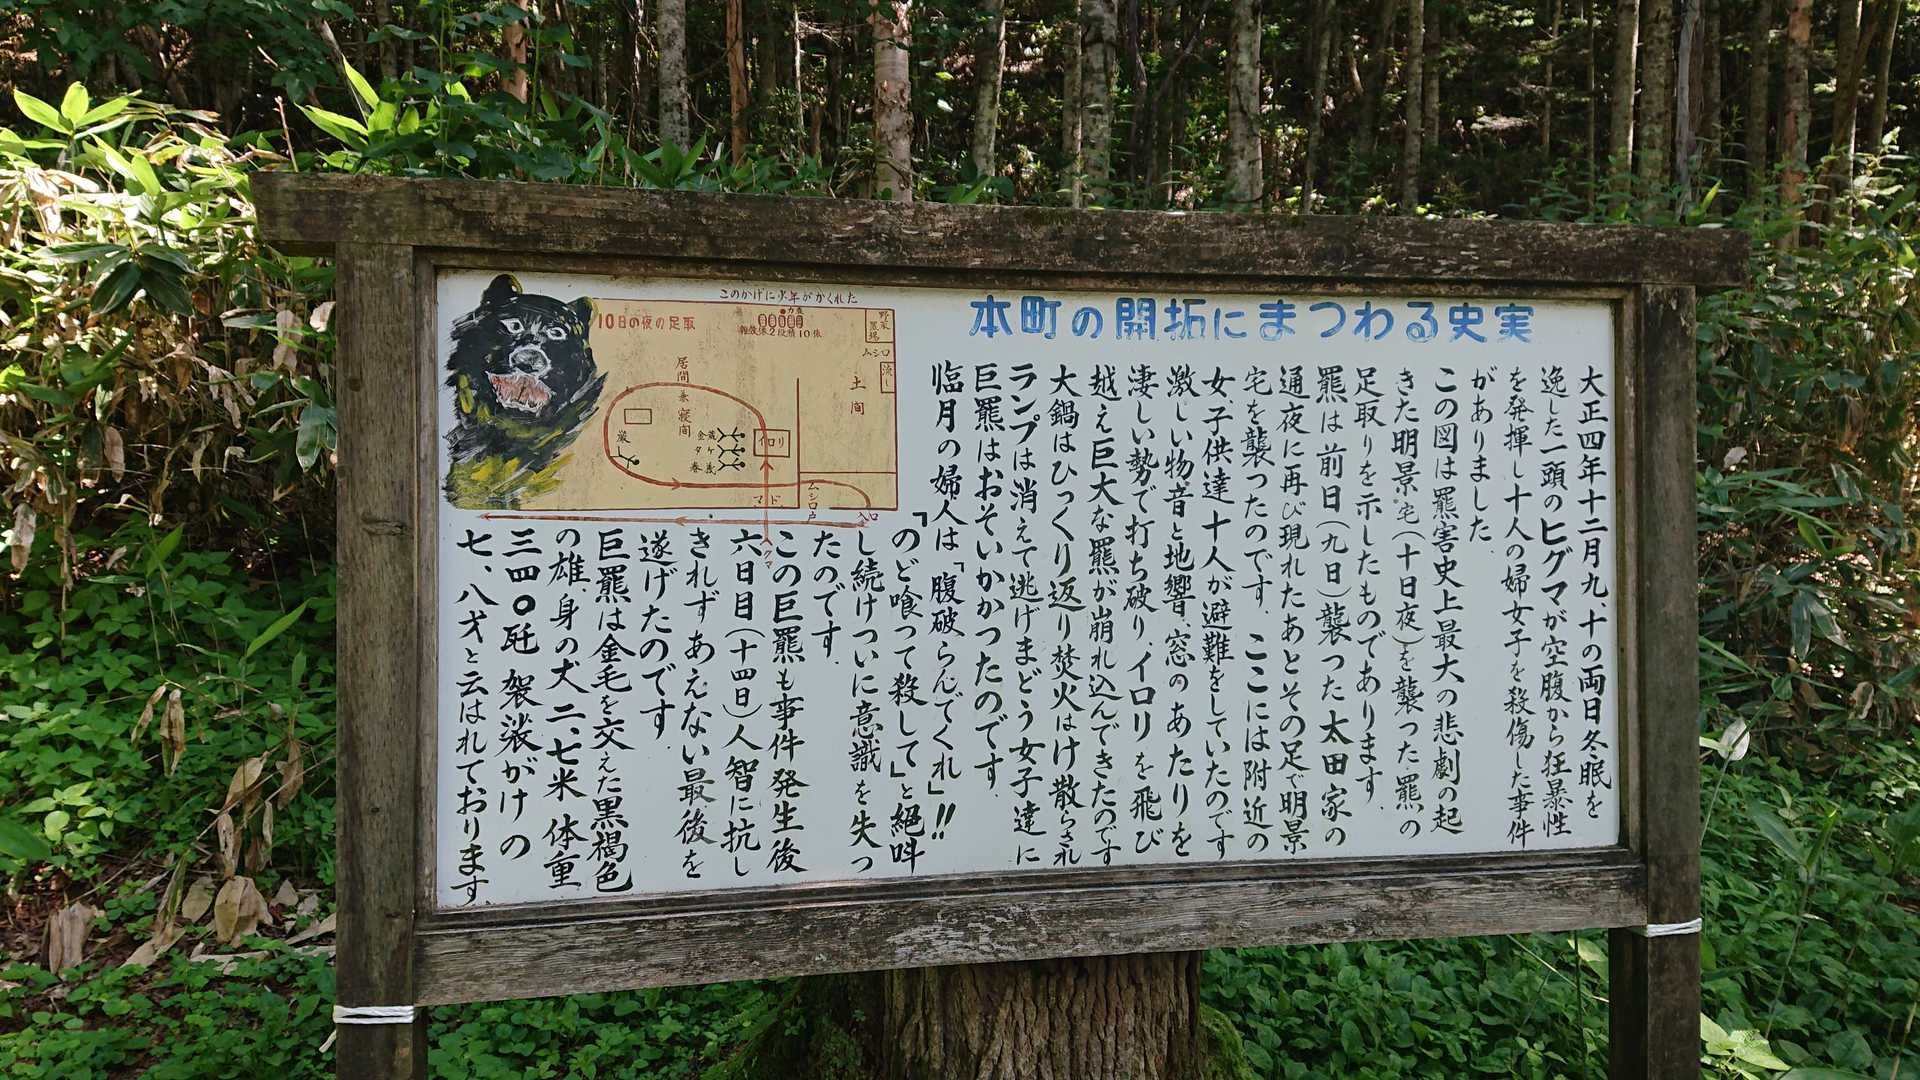 本町の開拓にまつわる史実
大正四年十二月九、十の両日冬眠を
逸した一頭のヒグマが空腹から狂暴性
を発揮し十人の婦女子を殺傷した事件
がありました.
この図は羆害史上最大の悲劇の起
きた明景宅(十日夜)を襲った羆の
足取りを示したものであります.
羆は前日(九日)襲った太田家の
通夜に再び現れたあとその足で明景
宅を襲ったのです.ここには附近の
女子供達十人が避難をしていたのです
激しい物音と地響、窓のあたりを
凄しい勢で打ち破り、イロリを飛び
越え巨大な羆が崩れ込んできたのです
大鍋はひっくり返り焚火はけ散らされ
ランプは消えて逃げまどう女子達に
巨羆はおそいかかつたのです.
臨月の婦人は「腹破らんでくれ」!!
「のど喰って殺して」と絕叫
し続けついに意識を失っ
たのです.
この巨羆も事件発生後
六日目(十四日)人智に抗し
きれずあえない最後を
遂げたのです
巨羆は金毛を交えた黒褐色
の雄、身の丈二、七米 体重
三四〇瓩 袈裟がけの
七、八才と云はれております.
このかげに少年がかくれた
10日の夜の足取
雑穀俵2段積10俵
野菜置場
ムシロ
流し
土間
居間兼寝間
イロリ
金蔵
タケ
春義
巌
マド
ムシロ戸
入口
クマ